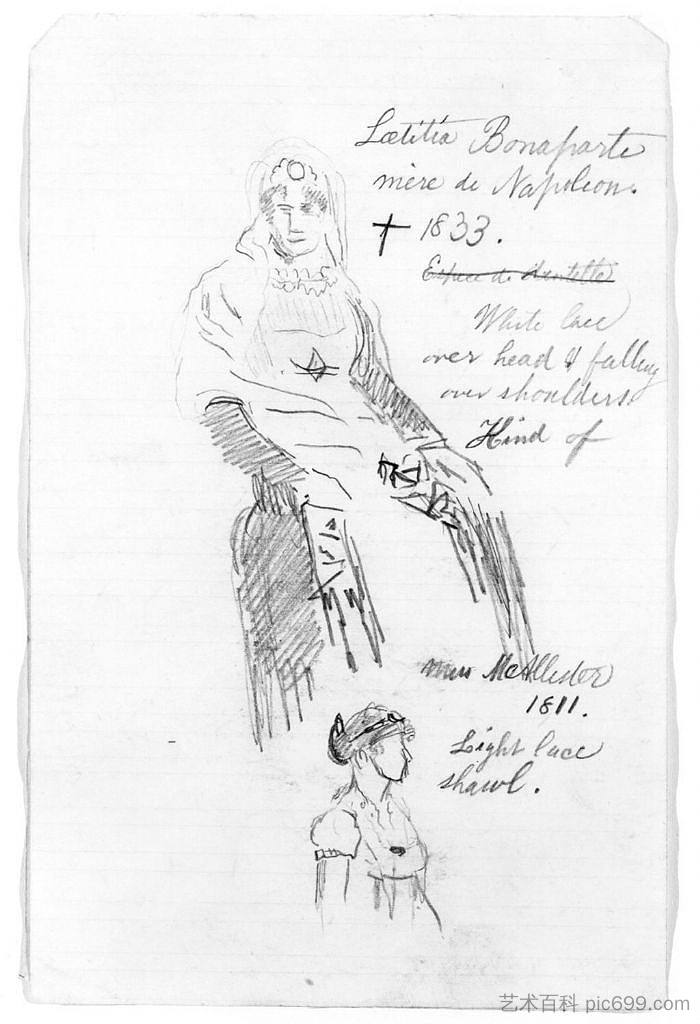 Lætitia Bonaparte
mère de Napoleon.
† 1833.
Espece de dentelle
White lace
over head & falling
over shoulders.
Kind of
Miss McAllister
1811.
Light lace
shawl.
艺术百科 pic699.com